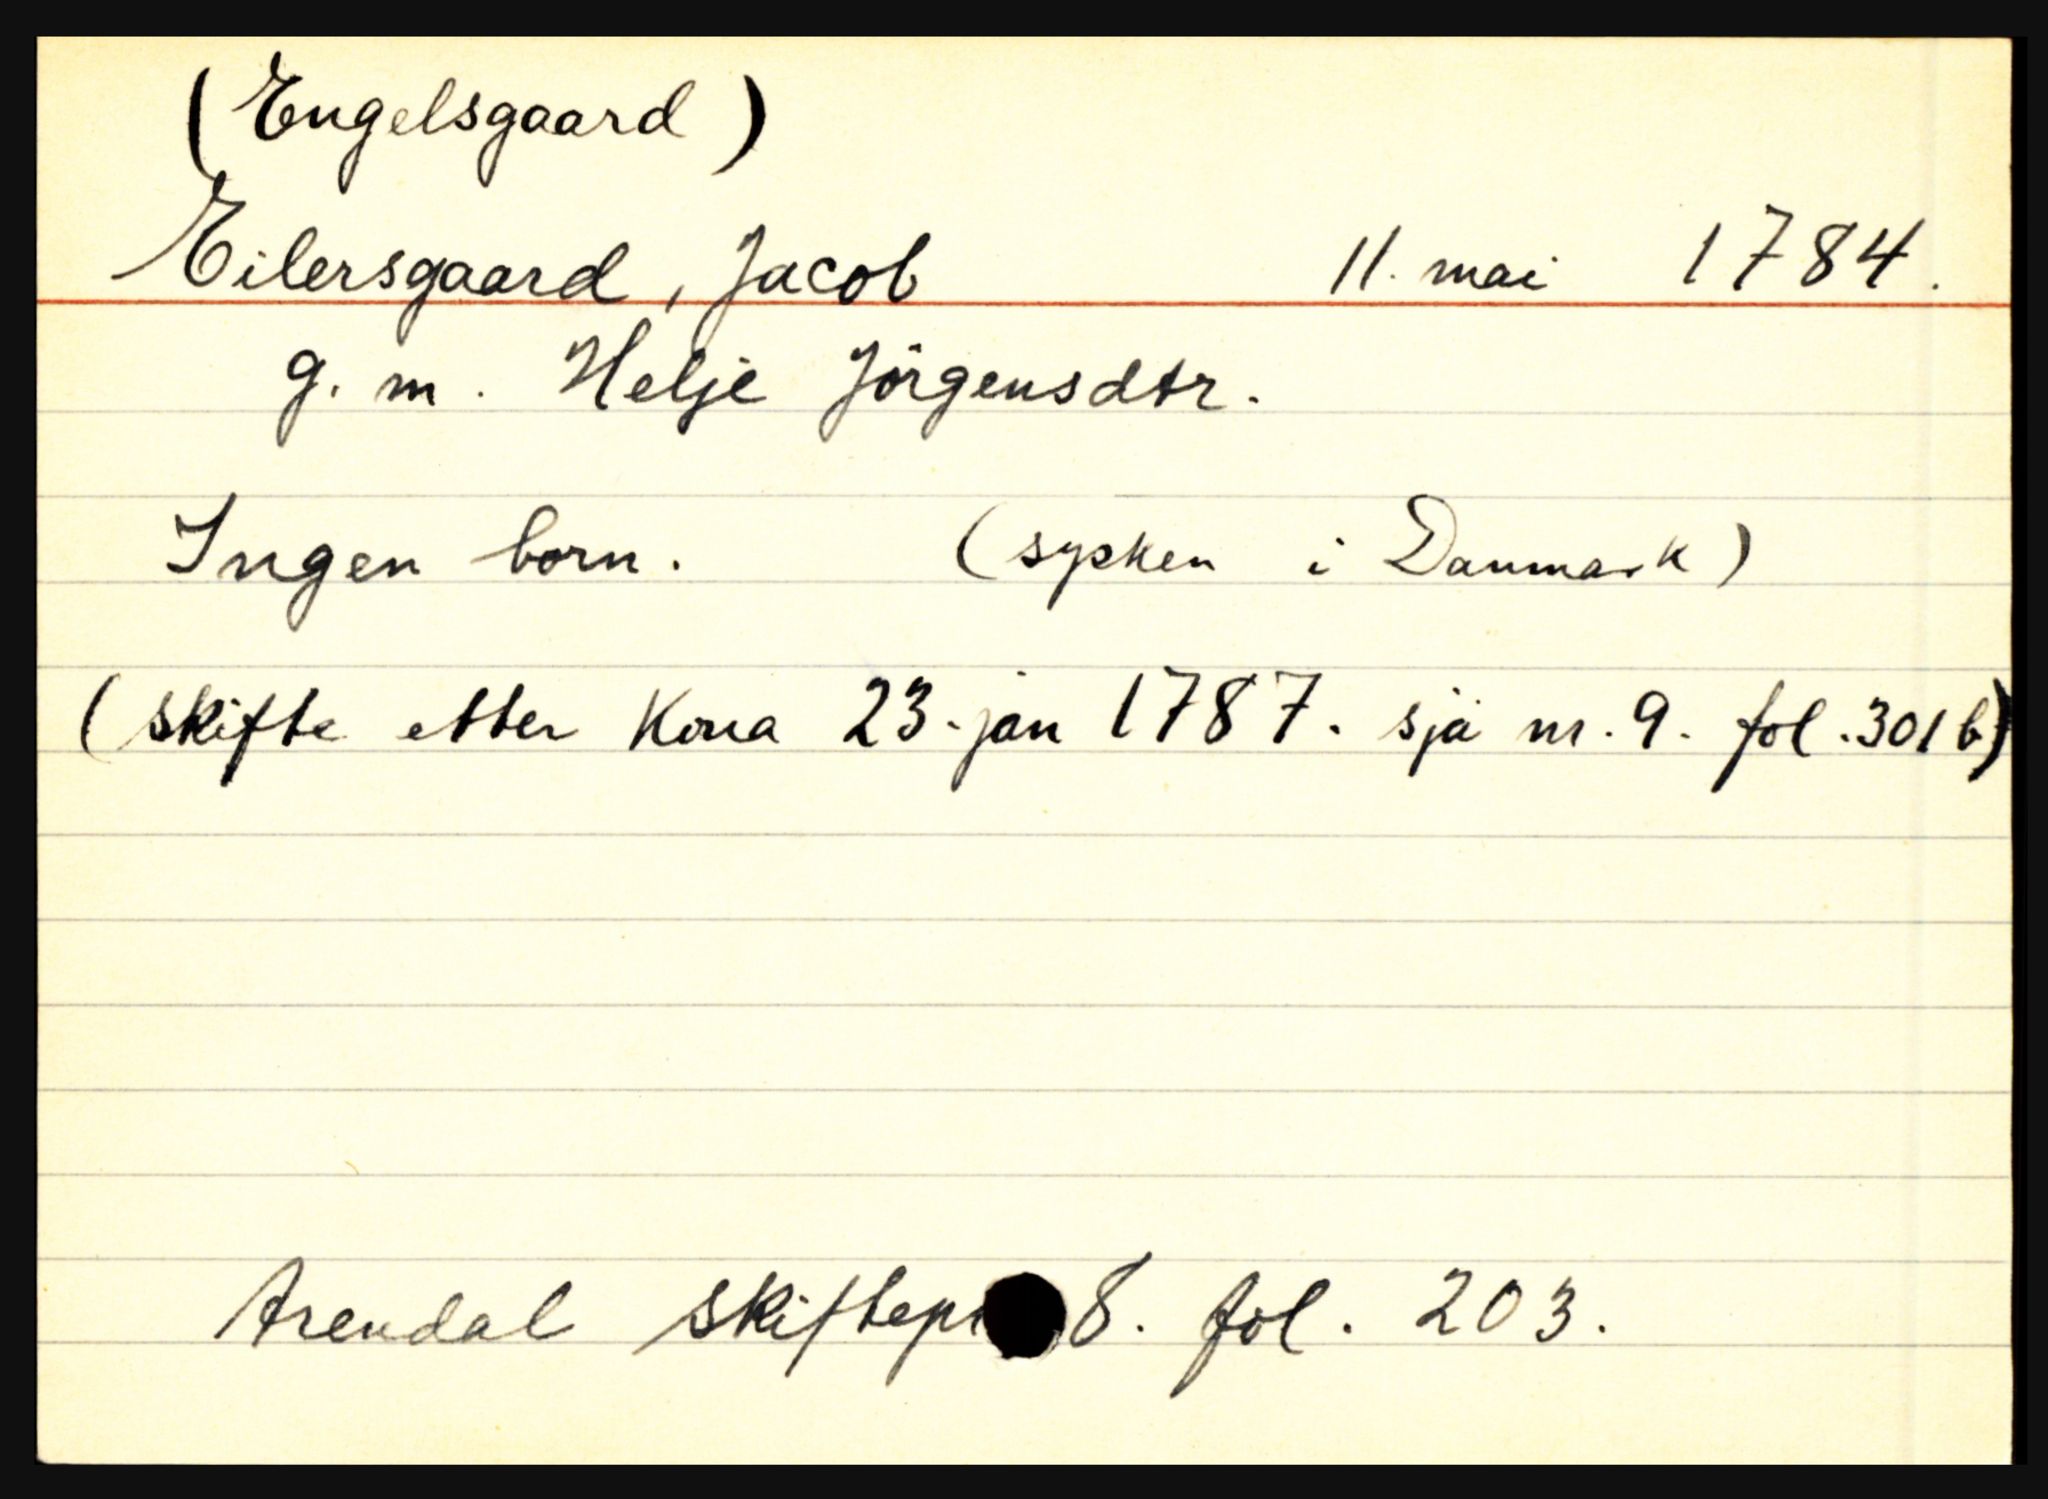 (Engelsgaard)
Eilersgaard, Jacob 11. mai 1784.
g. m. Helje Jörgensdtr.
Ingen born. (sysken i Danmark)
(skifte etter Kona 23. jan 1787. sjå nr. 9. fol. 301 b)
Arendal skiftepr 8. fol. 203.